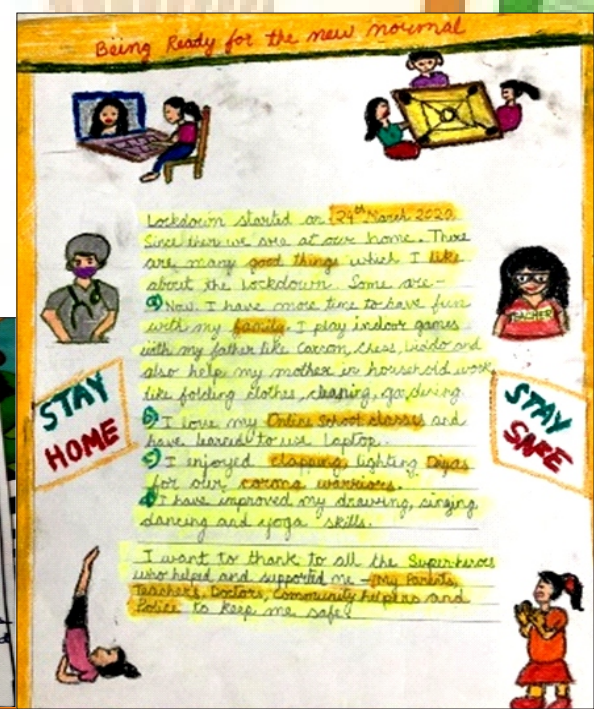 Being Ready for the new normal
Lockdown started on 24th March 2020.
Since then we are at our home. There
are many good things which I like
about the Lockdown. Some are-
a) Now I have more time to have fun
with my family. I play indoor games
with my father like Carrom, Chess, Luddo and
also help my mother in household work
like folding clothes, cleaning, gardening.
b) I love my Online School classes and
have learned to use laptop.
c) I enjoyed clapping, lighting Diyas
for our corona warriors.
d) I have improved my drawing, singing
dancing and yoga skills.
I want to thank to all the Superheroes
who helped and supported me - My Parents,
Teachers, Doctors, Community helpers and
Police to keep me safe.
TEACHER
STAY
HOME
STAY
SAFE